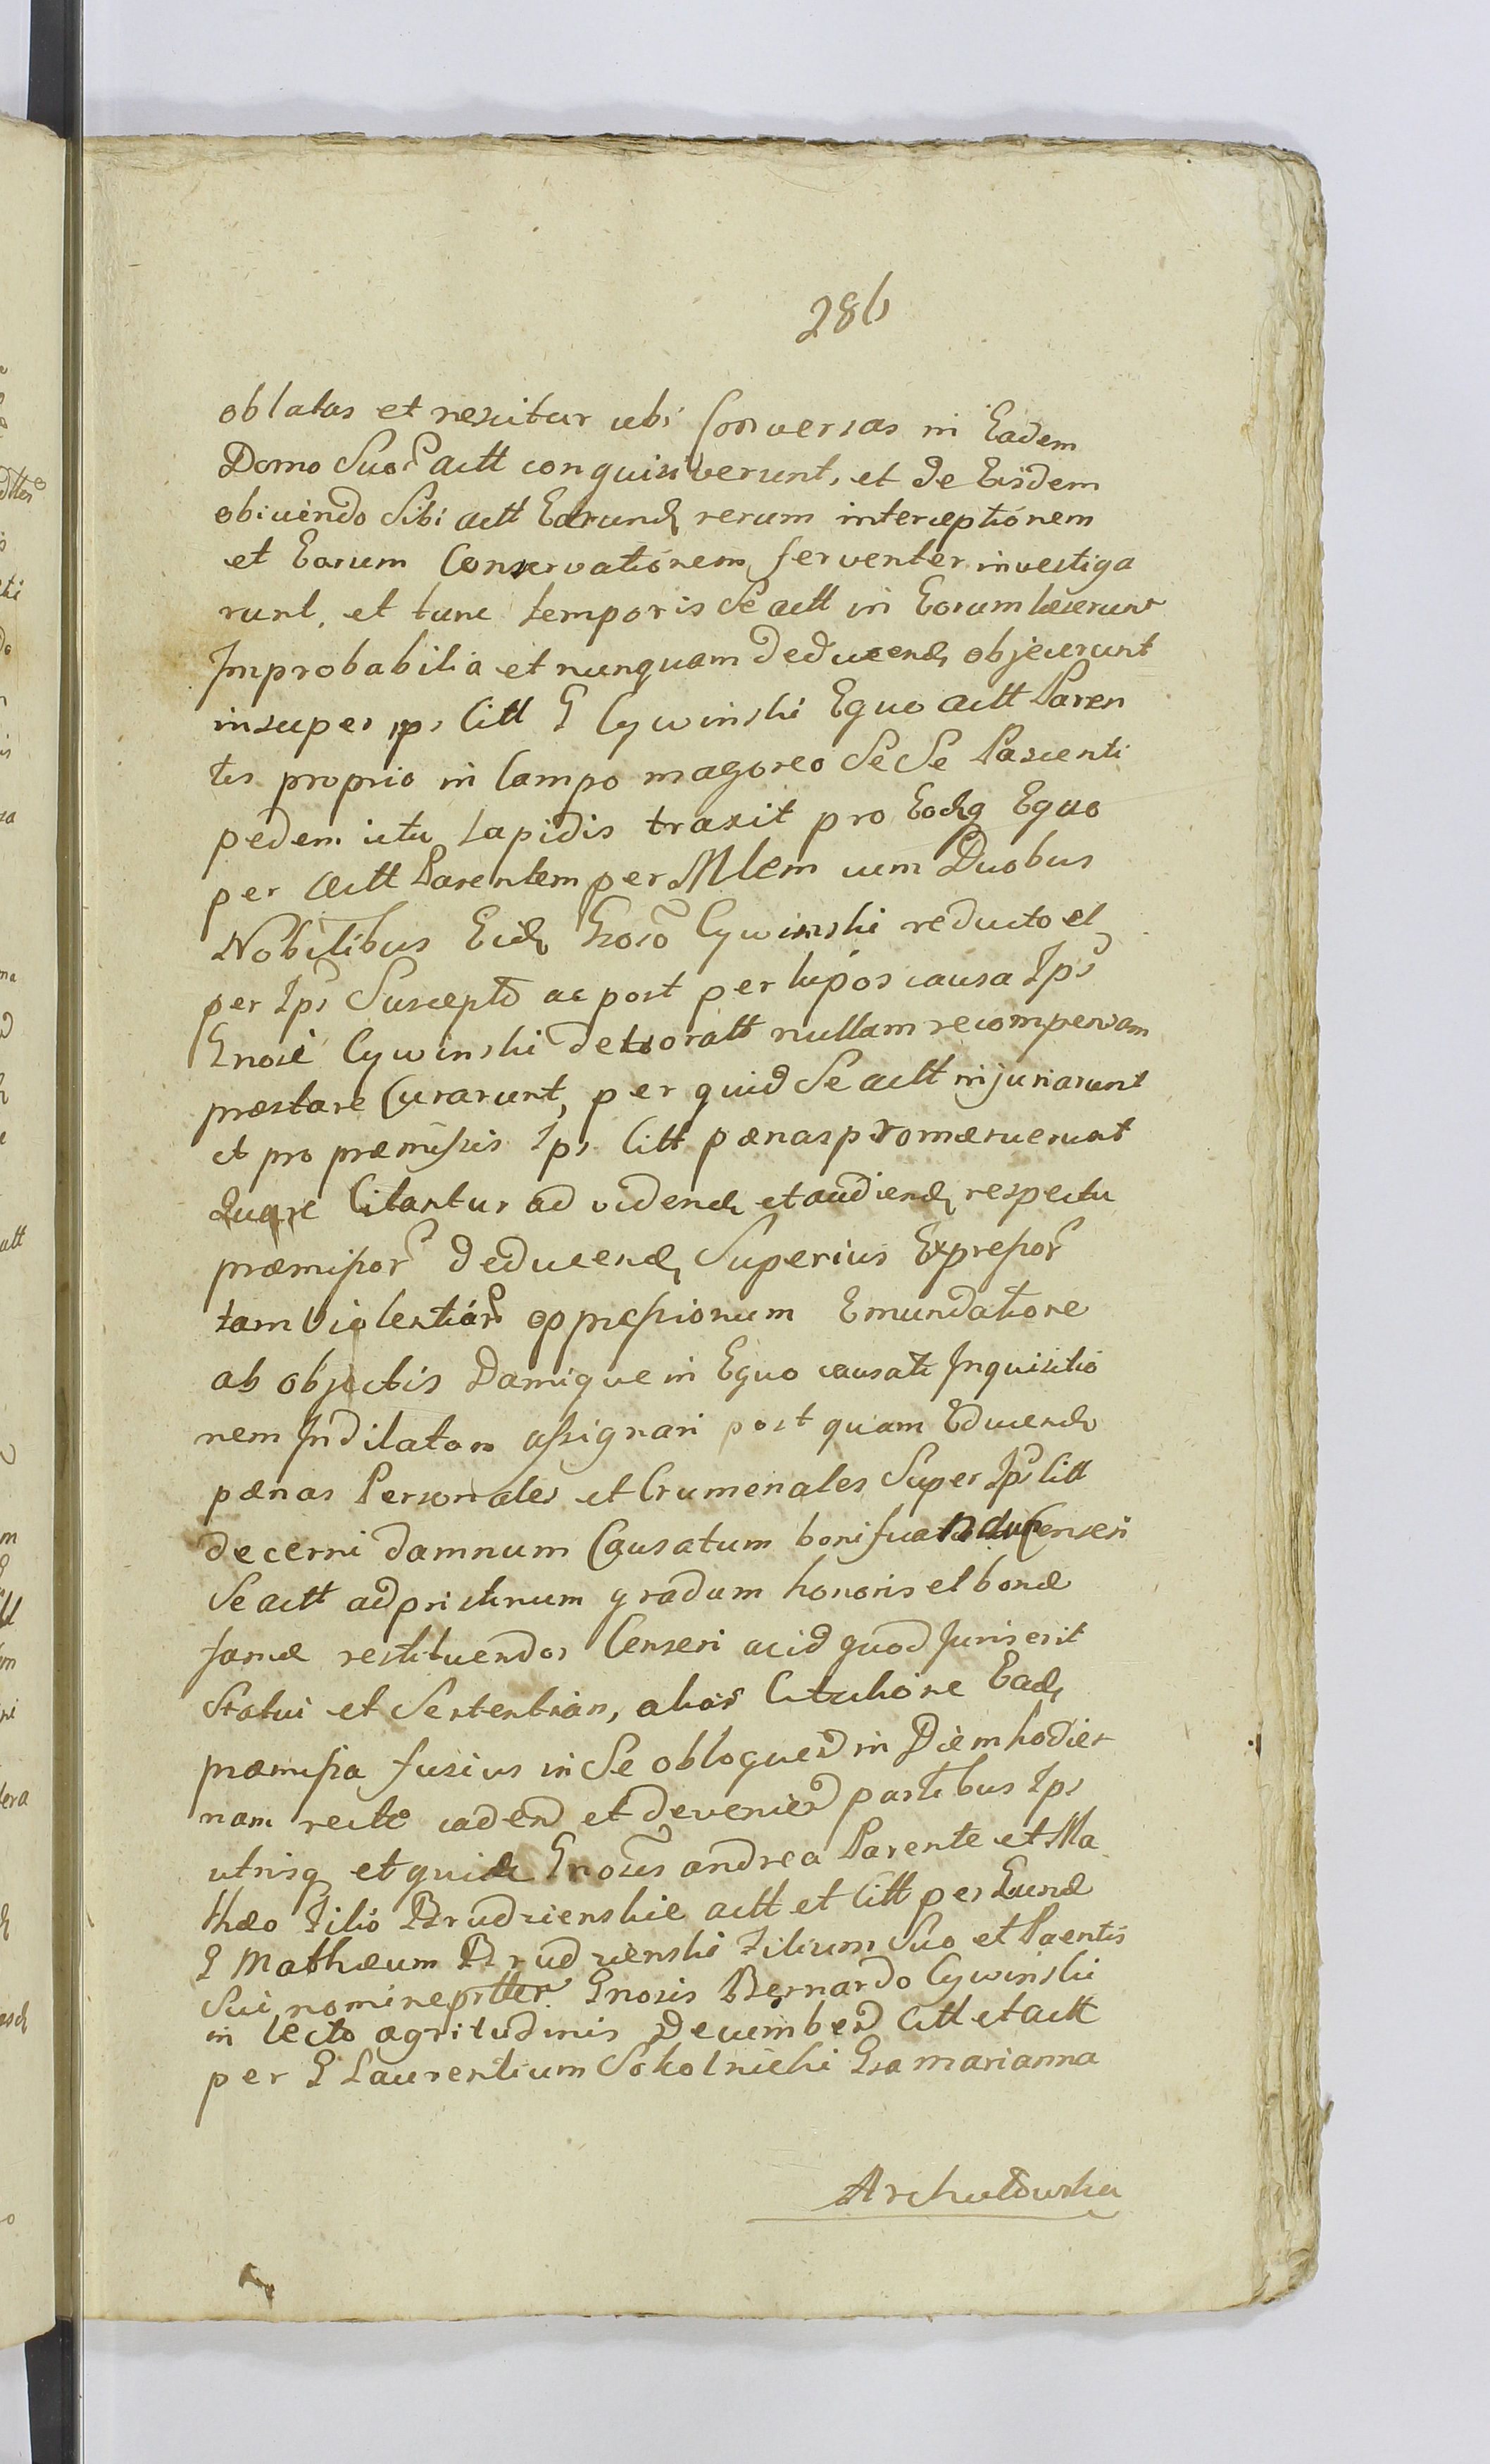 286
oblatas et nescitur ubi Conversas in Eadem
Domo Suor actt conquisiverunt, et de Eisdem
obiiciendo Sibi actt Earund rerum interceptionem
et Earum Conservationem ferventer investiga
runt, et tunc temporis Se actt in Eorum læserunt
Improbabilia et nunquam deducend objecerunt
insuper ips Citt G Cywinski Equo actt Paren
tis proprio in Campo Se Se Pascenti
pedem ictu Lapidis traxit pro Eodq Equo
per actt Parentem per Mlem cum Duobus
Nobilibus Eid Groso Cywinski reducto et
per Ips Suscepto ac post per lupos causa Ips
Gnosi Cywinski devoratt nullam recompensam
præstare Curarunt, per quid Se actt injuriarunt
et pro præmissis Ips Citt pænas promæruerunt
Quare Citantur ad vidend et audiend respectu
præmissor deducend Superius Expressor
tam Violentiar oppressionum Emundatione
ab objectis Damique in Equo causati Inquisitio
nem Indilatam assignari post quam Educend
pænas Personales et Crumenales Super Ips Citt
decerni damnum Causatum bonificandum Censeri
Se actt ad pristinum gradum honoris et bonæ
famæ restituendos Censeri acid quod Juris erit
Statui et Sententiari, alias Citatione Ead
præmissa fusius in Se obloquend in Diem hodier
nam recte cadend et deveniend partibus Ips
utrisq et quid Gnosis andrea Parente et Ma
thæo Filio Brudzienskie actt et Citt per Eund
G Mathæum Brudzienski Filium Suo et Paentis
Sui nomine prtter Gnosis Bernardo Cywinski
in lecto ægritudinis Decumbend Citt et actt
per G Laurentium Sokolnicki Gsa marianna
Archutowska